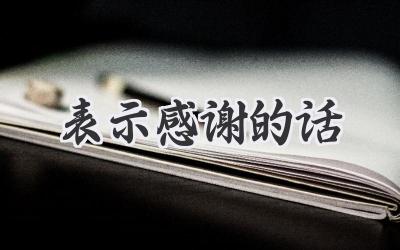 表示感谢的话